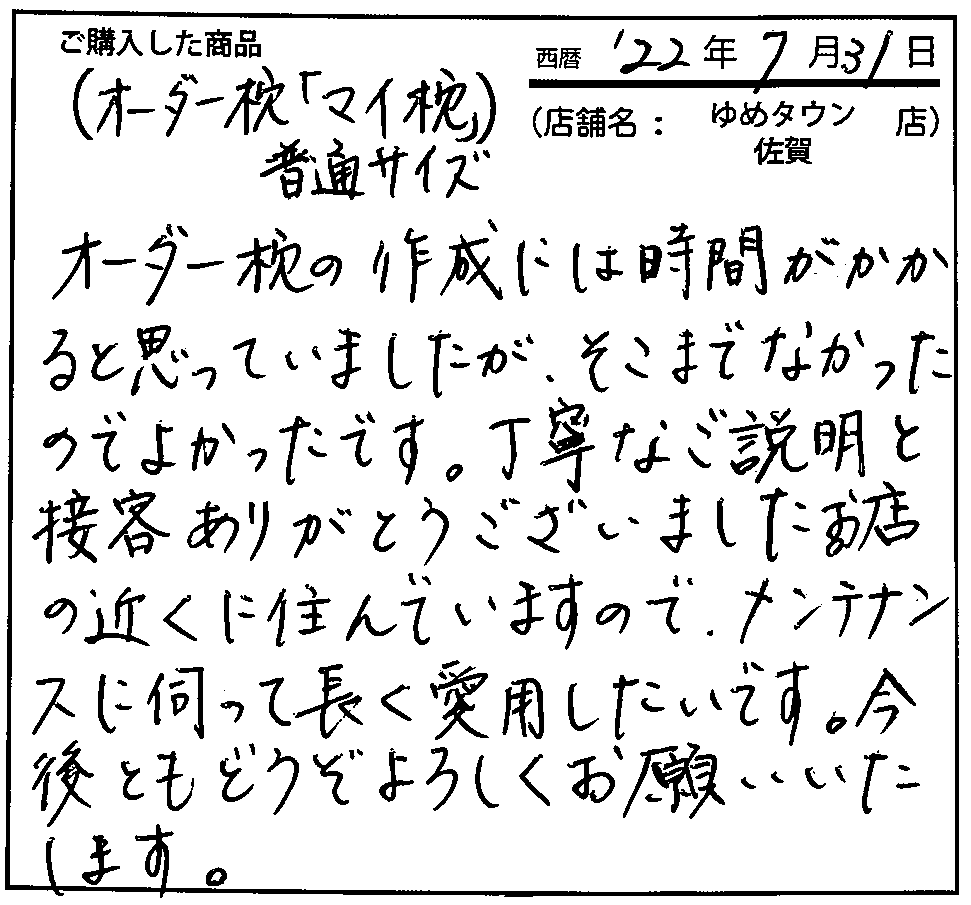 ご購入した商品
西暦 '22年 7月31日
(オーダー枕「マイ枕」)
普通サイズ
(店舗名: ゆめタウン 店)
佐賀
オーダー枕の作成には時間がかか
ると思っていましたが、そこまでなかった
のでよかったです。丁寧なご説明と
接客ありがとうございましたお店
の近くに住んでいますので、メンテナン
スに伺って長く愛用したいです。今
後ともどうぞよろしくお願いいた
します。